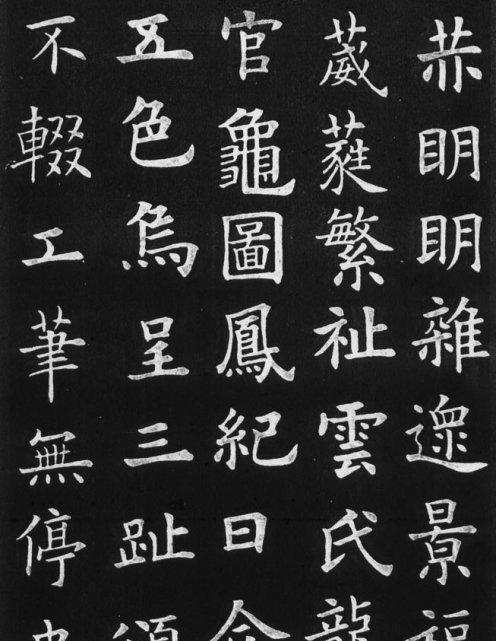 明明雜遝景福
葳蕤繁祉雲氏龍
官龜圖鳳紀日含
五色烏呈三趾頌
不輟工筆無停史